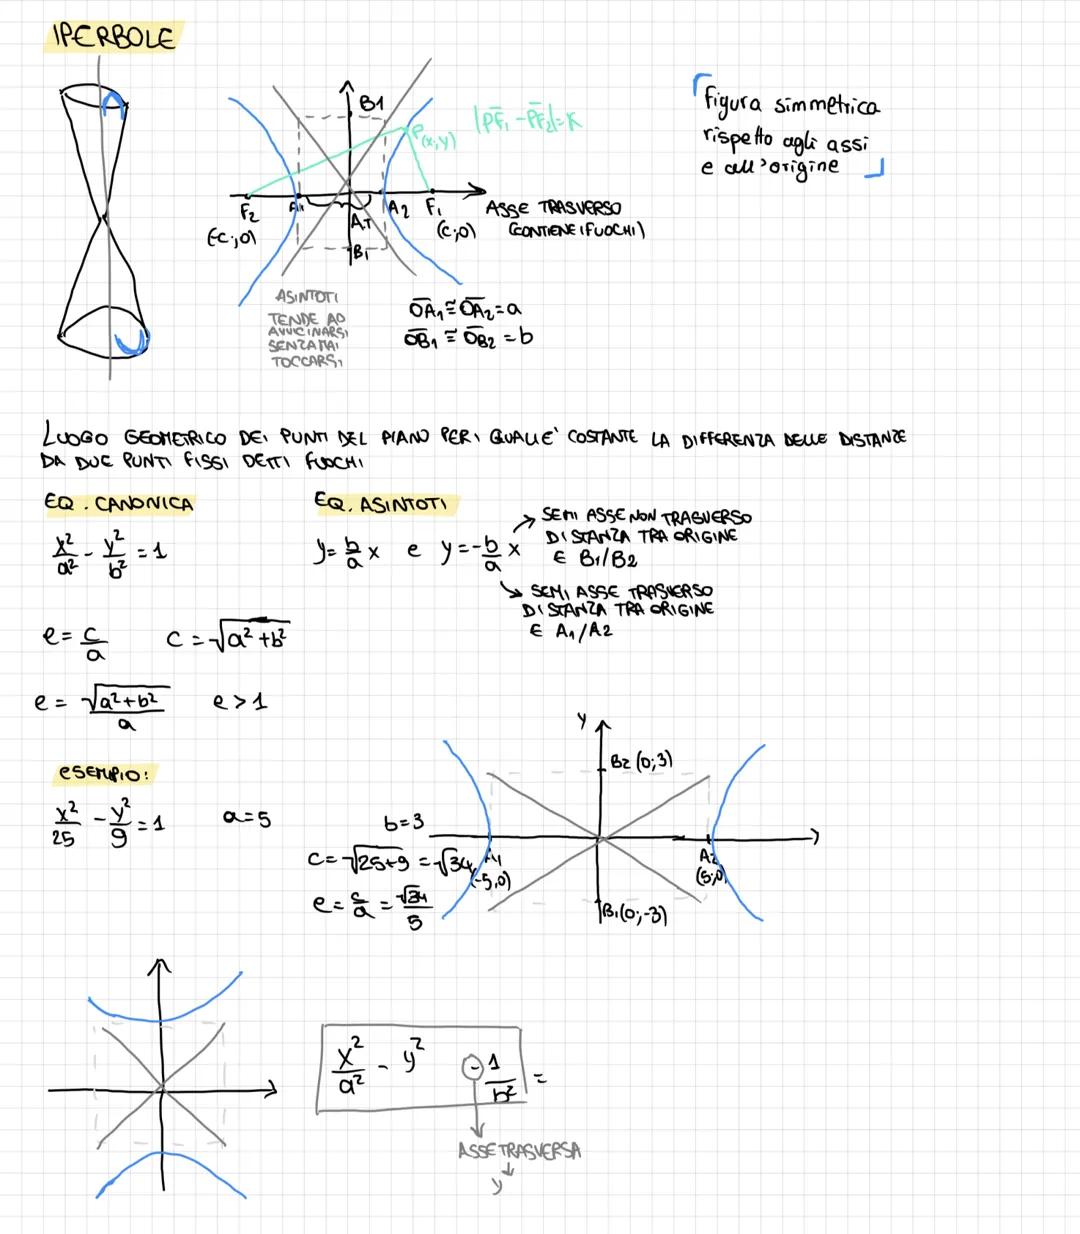 IPERBOLE
B1
P(x,y)
|P̅F̅₁ - P̅F̅₂|=K
figura simmetrica
rispetto agli assi
e all'origine
F₂
A1
AT
A2
F₁
ASSE TRASVERSO
(-c;0)
(c;0)
(CONTIENE I FUOCHI)
B1
ASINTOTI
TENDE AD
AVVICINARSI
SENZA MAI
TOCCARSI
O̅A̅₁≅O̅A̅₂=a
O̅B̅₁≅O̅B̅₂=b
LUOGO GEOMETRICO DEI PUNTI DEL PIANO PER I QUALI E' COSTANTE LA DIFFERENZA DELLE DISTANZE
DA DUE PUNTI FISSI DETTI FUOCHI
EQ. CANONICA
x²/a² - y²/b² = 1
EQ. ASINTOTI
y= b/a x e y=-b/a x
SEMI ASSE NON TRASVERSO
DISTANZA TRA ORIGINE
E B1/B2
SEMI ASSE TRASVERSO
DISTANZA TRA ORIGINE
E A1/A2
e = c/a
c = √(a²+b²)
e = √(a²+b²)/a
e > 1
ESEMPIO:
x²/25 - y²/9 = 1
a=5
b=3
c=√(25+9) = √34
e= c/a = √34/5
y
B2 (0;3)
A1
(-5,0)
A2
(5;0)
B1(0;-3)
x²/a² - y² - 1/b² =
ASSE TRASVERSA
y